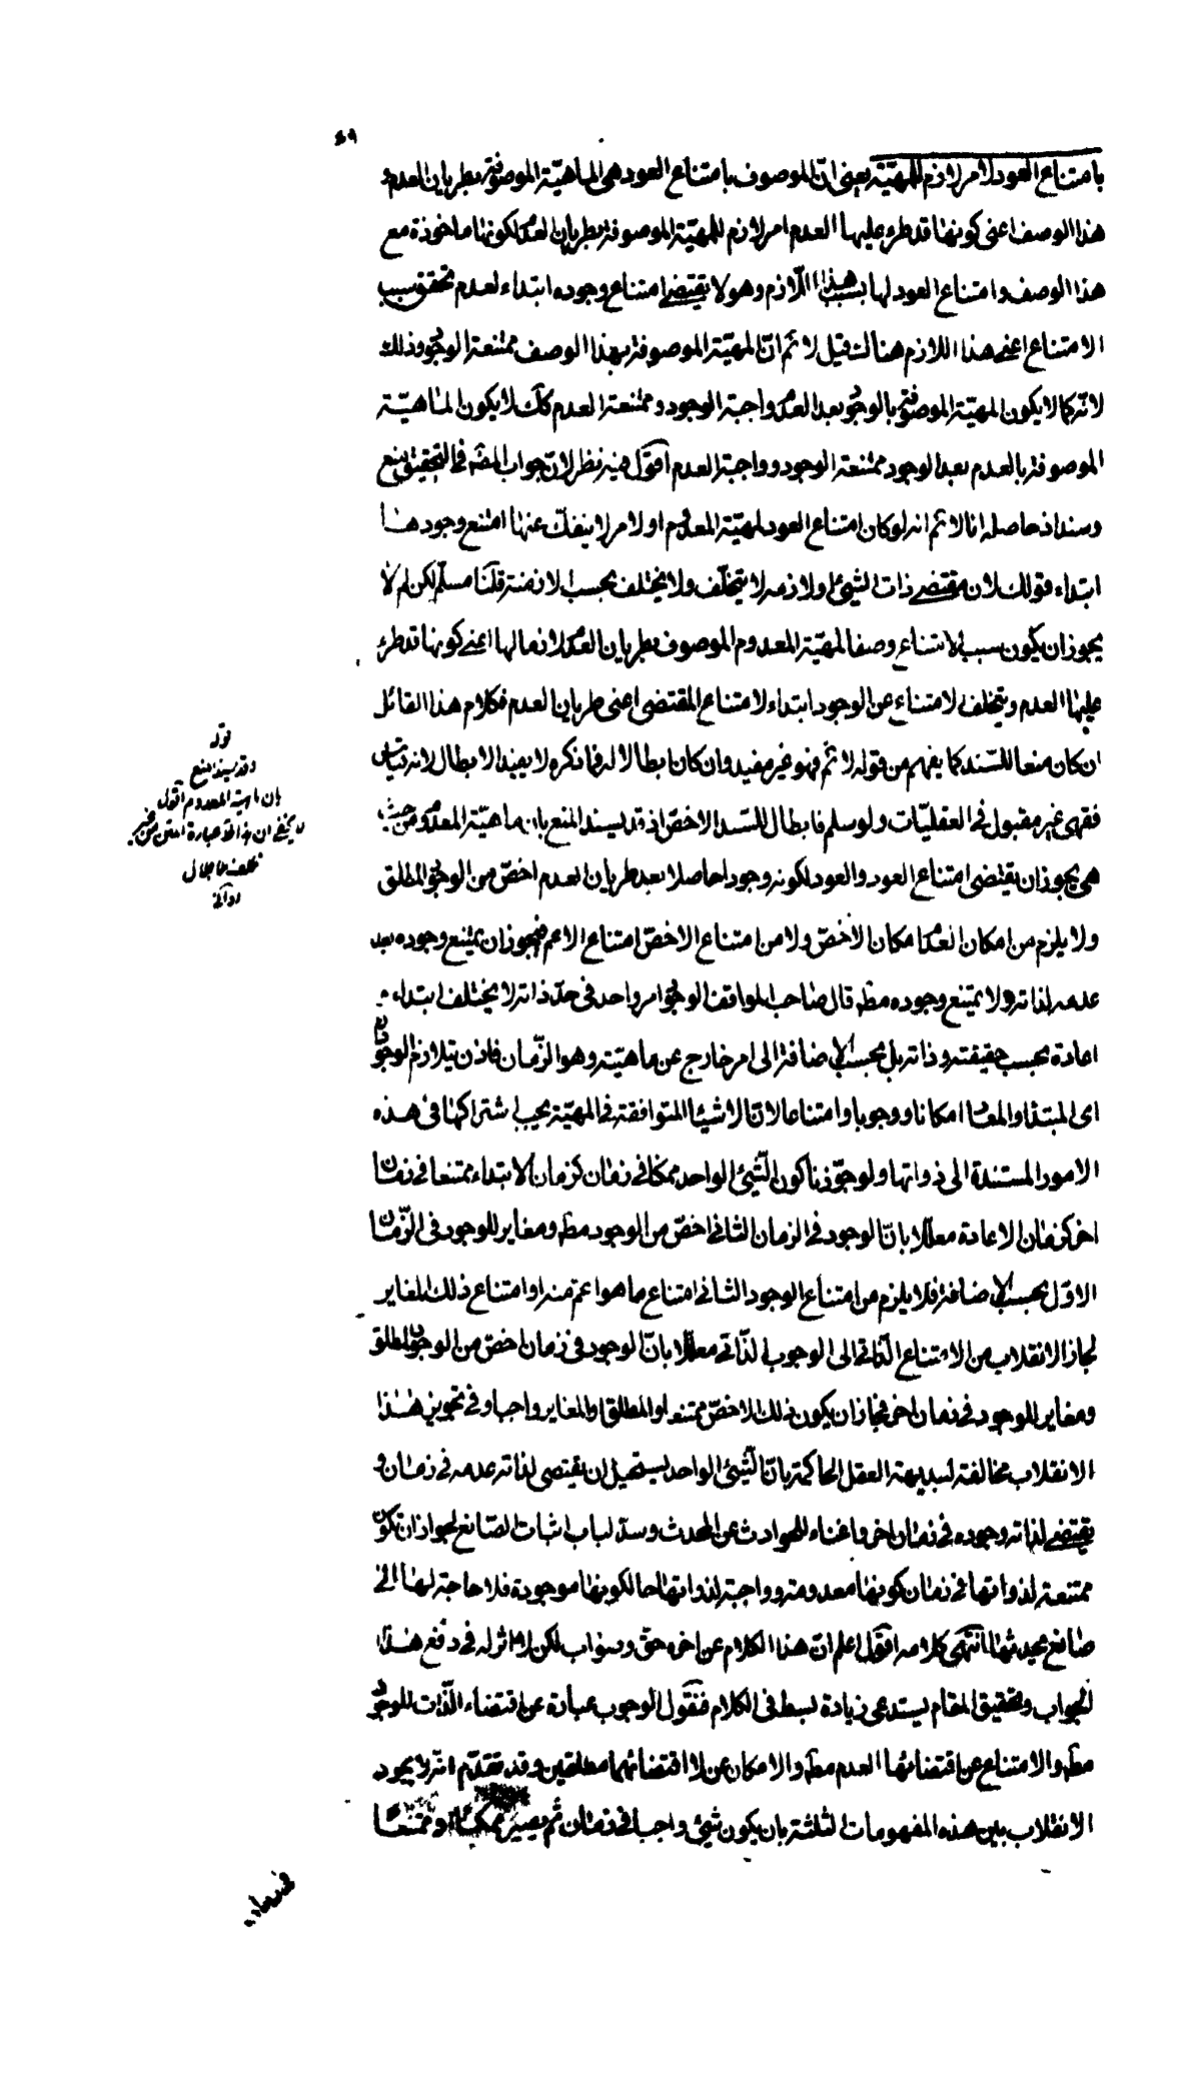 ٤٩
بامتناع العود لامر لازم للمهيّة يعنى انّ الموصوف بامتناع العود هى الماهيّة الموصوفة بطريان العدم و
هذا الوصف اعنى كونها قد طرء عليها العدم امر لازم للمهيّة الموصوفة بطريان العدم لكونها ماخوذة مع
هذا الوصف و امتناع العود لها بسبب هذا اللّازم وهو لا يقتضى امتناع وجوده ابتداء لعدم تحقق سبب
الامتناع اعنى هذا اللازم هناك قيل لا ثم انّ المهيّة الموصوفة بهذا الوصف ممتنعة الوجود وذلك
لانّه كما لا يكون المهيّة الموصوفة بالوجود بعد العدم واجبة الوجود وممتنعة العدم كك لا يكون الماهيّة
الموصوفة بالعدم بعد الوجود ممتنعة الوجود وواجبة العدم اقول فيه نظر لانّ جواب المصّ فى التحقيق منع
وسند اذ حاصله انا لا ثم انه لو كان امتناع العود لمهيّة المعدوم او لامر لا ينفك عنها امتنع وجودها
ابتداء قولك لان مقتضى ذات الشيئ او لازمه لا يتخلّف ولا يختلف بحسب الازمنة قلنا مسلّم لكن لم لا
يجوز ان يكون سبب الامتناع وصفا لمهيّة المعدوم الموصوف بطريان العدم لازما لها اعنى كونها قد طرء
عليها العدم ويتخلف الامتناع عن الوجود ابتداء لامتناع المقتضى اعنى طريان العدم فكلام هذا القائل
ان كان منعا للسّند كما يفهم من قوله لا ثم فهو غير مفيد وان كان ابطالا له فما ذكره لا يفيد الابطال لانه قياس
فقهى غير مقبول فى العقليّات ولو سلم فابطال للسّند الاخصّ اذ قد يسند المنع بان ماهيّة المعدوم من حيث
هى يجوز ان يقتضى امتناع العود والعود لكونه وجودا حاصلا بعد طريان العدم اخصّ من الوجود المطلق
ولا يلزم من امكان العدم امكان الاخصّ ولا من امتناع الاخصّ امتناع الاعم فيجوز ان يمتنع وجوده بعد
عدمه لذاته ولا يمتنع وجوده مطّ قال صاحب المواقف الوجود امر واحد فى حدّ ذاته لا يختلف ابتداء و
اعادة بحسب حقيقته وذاته بل بحسب الاضافة الى امر خارج عن ماهيّته وهو الزّمان فاذن يتلازم الوجودان
اى المبتدا والمعاد امكانا ووجوبا وامتناعا لانّ الاشياء المتوافقة فى المهيّة يجب اشتراكها فى هذه
الامور المستندة الى ذواتها ولو جوّزنا كون الشّيئ الواحد ممكنا فى زمان كزمان الابتداء ممتنعا فى زمان
اخر كزمان الاعادة معلّلا بانّ الوجود فى الزمان الثانى اخصّ من الوجود مطّ ومغاير للوجود فى الزّمان
الاوّل بحسب الاضافة فلا يلزم من امتناع الوجود الثانى امتناع ما هو اعم منه او امتناع ذلك المغاير
لجاز الانقلاب من الامتناع الذّاتى الى الوجوب الذّاتى معلّلا بانّ الوجود فى زمان اخصّ من الوجود المطلق
ومغاير للوجود فى زمان اخر فجاز ان يكون ذلك الاخصّ ممتنعا والمطلق او المغاير واجبا وفى تجويز هذا
الانقلاب مخالفة لبديهة العقل الحاكمة بانّ الشّيئ الواحد يستحيل ان يقتضى لذاته عدمه فى زمان و
يقتضى لذاته وجوده فى زمان اخر واغناء للحوادث عن المحدث وسدّ لباب اثبات الصّانع لجواز ان تكون
ممتنعة لذواتها فى زمان كونها معدومة وواجبة لذواتها حال كونها موجودة فلا حاجة لها الى
صانع يحدثها انتهى كلامه اقول اعلم انّ هذا الكلام عن اخره حق وصواب لكن لا اثر له فى دفع هذا
الجواب وتحقيق المقام يستدعى زيادة بسط فى الكلام فنقول الوجوب عبارة عن اقتضاء الذّات للوجود
مطّ والامتناع عن اقتضائها العدم مطّ والامكان عن لا اقتضائهما مطلقين وقد تقدّم انّه لا يجوز
الانقلاب بين هذه المفهومات الثلثة بان يكون شيئ واجبا فى زمان ثم يصير ممكنا او ممتنعا
قوله
وقد يسند المنع
بان ماهية المعدوم اقول
لا يخفى ان هذا عبارة المتن من غير
تكلف